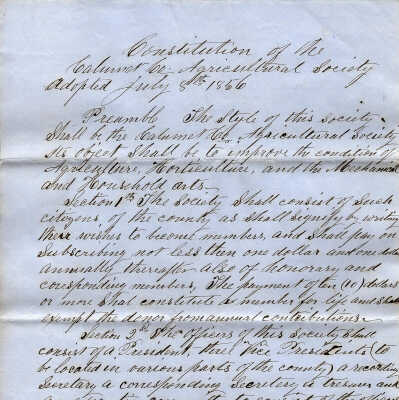 Constitution of the
Calumet Co. Agricultural Society
Adopted July 8th 1856
Preambl The Style of this Society
Shall be the Calumet Co. Agricultural Society
Its object Shall be to improve the condition of
Agriculture, Horticulture, and the Mechanical
and Household arts.
Section 1th The Society Shall consist of Such
citizens of the county as Shall signify by writing
their wishes to becomt members, and Shall pay on
Subscribing not less then one dollar and one dollar
annually thereafter also of honorary and
coresponding members, The payment of ten (10) dollars
or more Shal constitute a member for life and Shall
exempt the donor from annual contributions.
Section 2th The Officers of this Society Shall
consist of a President, Vice Presidents (to
be located in various parts of the county) a recording
Secretary a corresponding Secretary a tresurer and